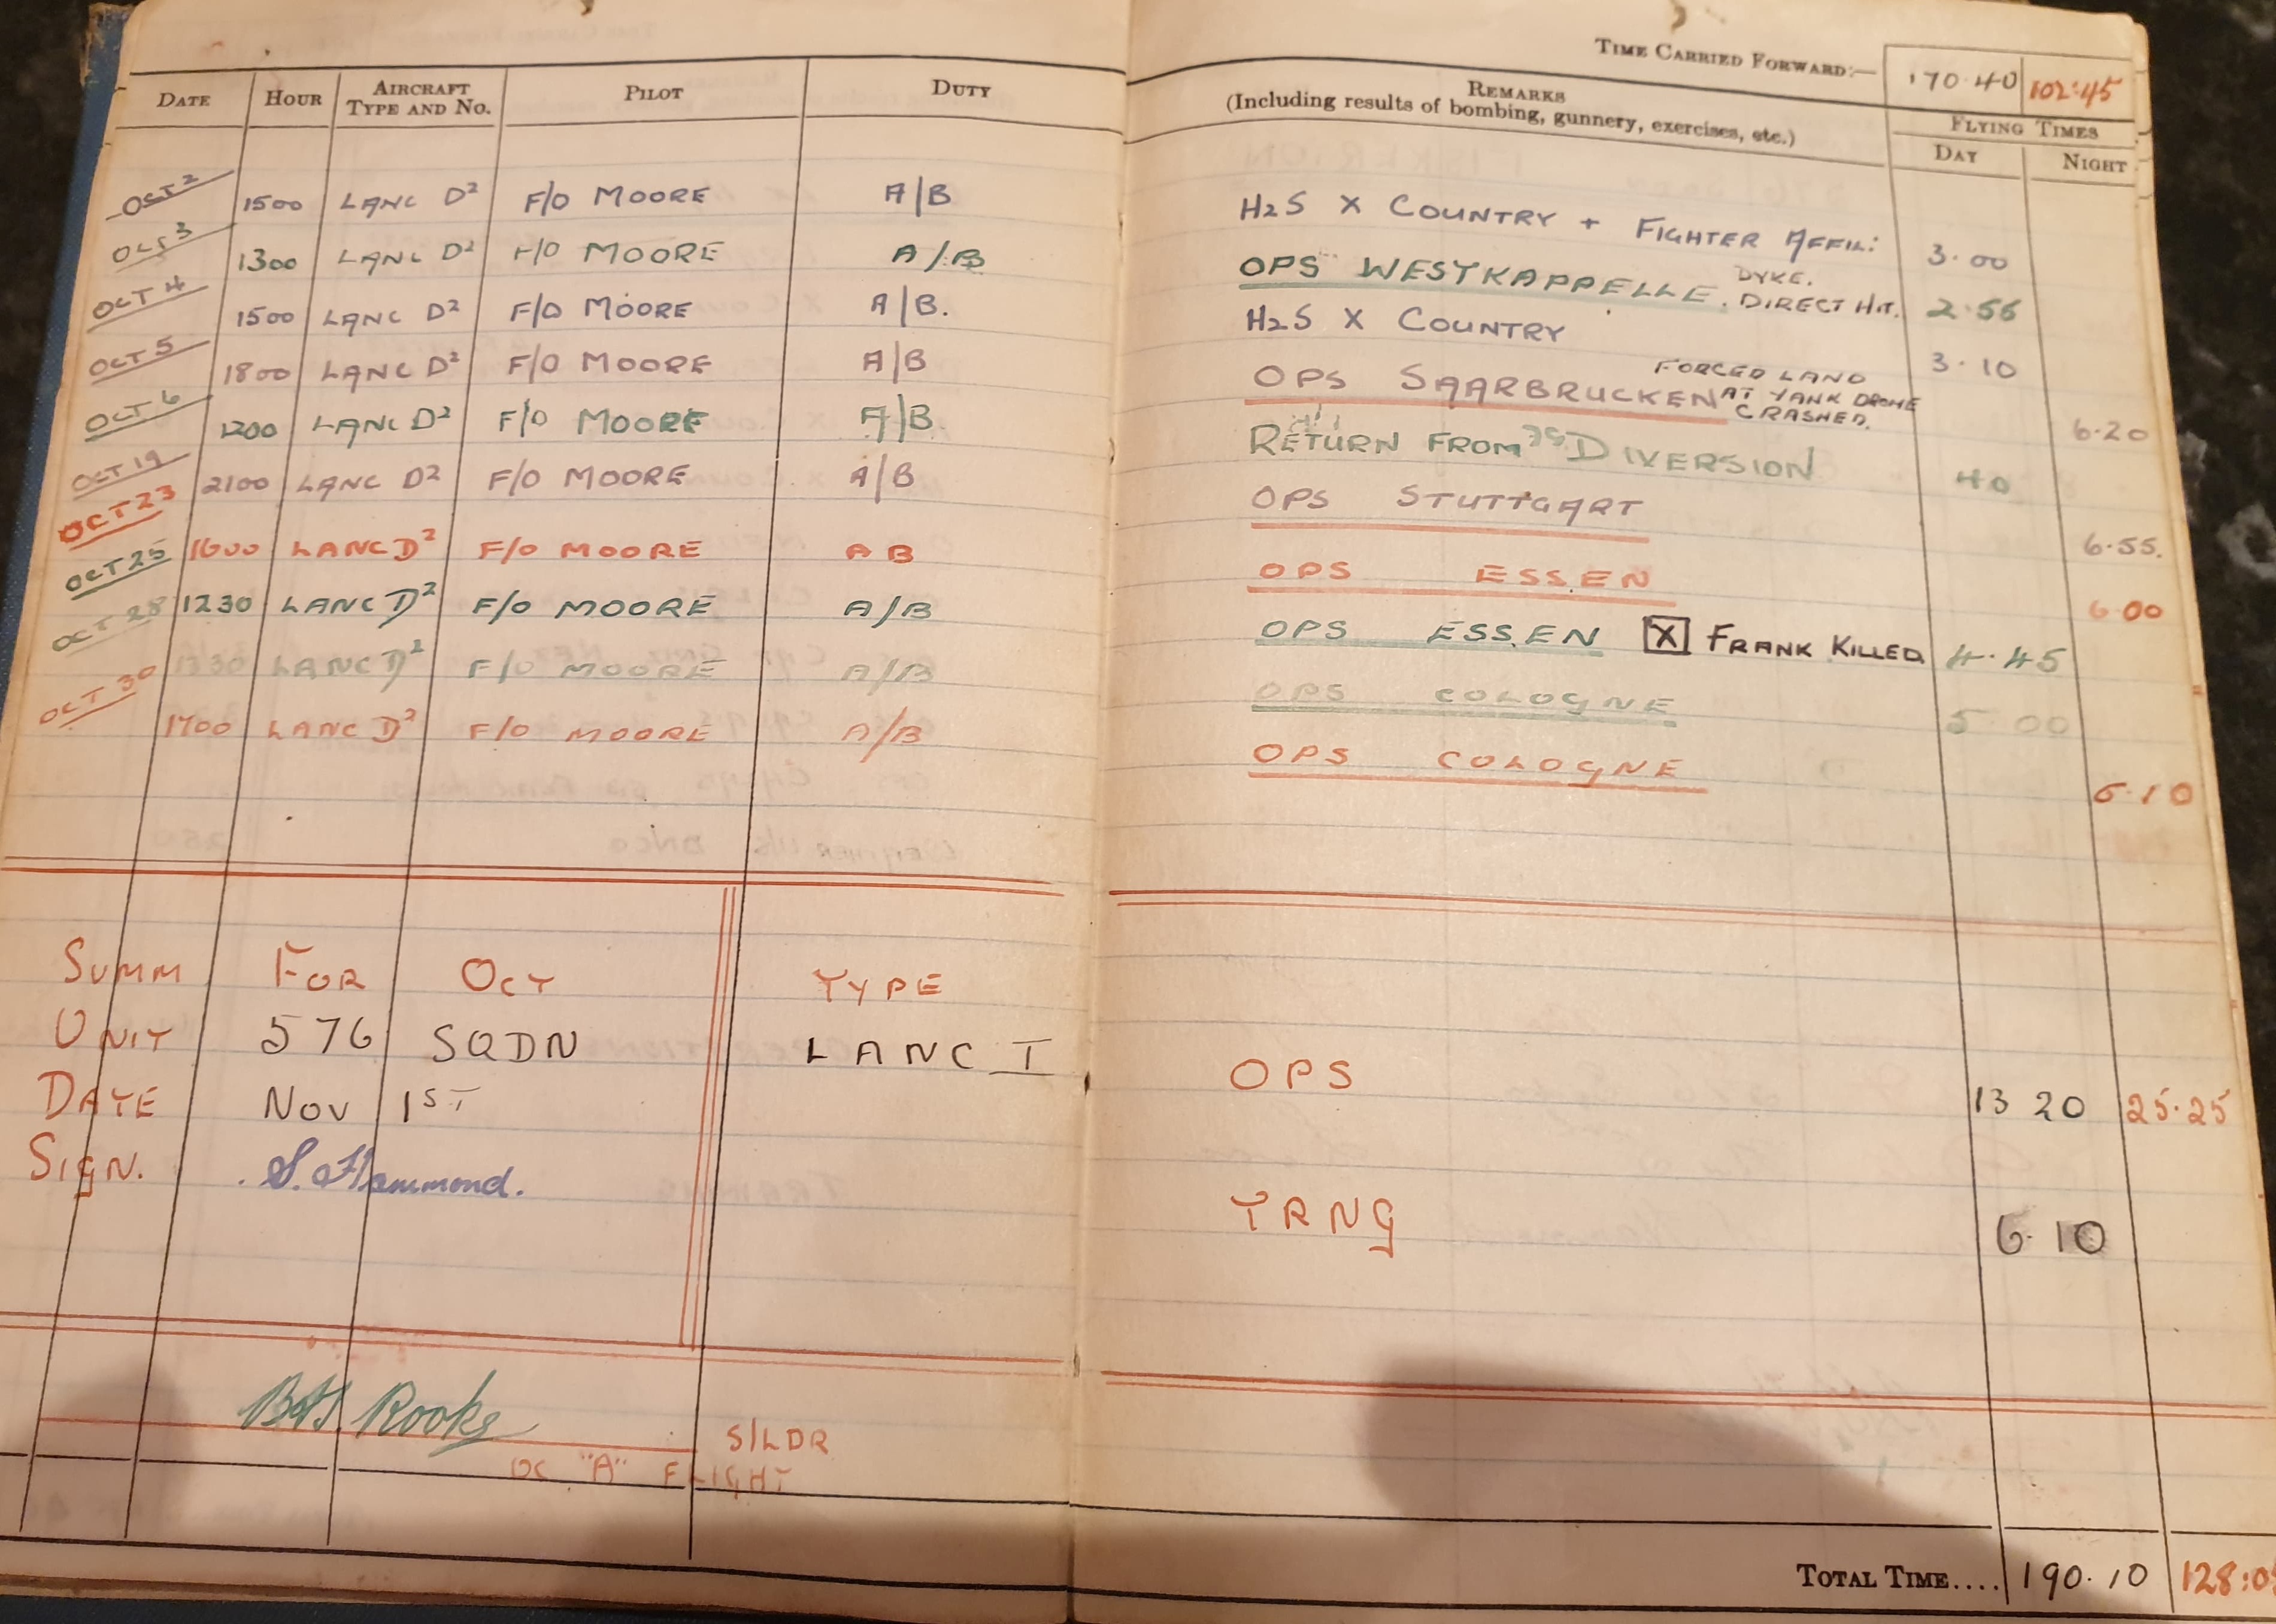 TIME CARRIED FORWARD:— 170.40 102:45
DATE HOUR AIRCRAFT TYPE AND NO. PILOT DUTY REMARKS (Including results of bombing, gunnery, exercises, etc.) FLYING TIMES DAY NIGHT
OCT 2 1500 LANC D² F/O MOORE A/B H2S X COUNTRY + FIGHTER AFFIL: 3.00
OCT 3 1300 LANC D² F/O MOORE A/B OPS WESTKAPPELLE. DYKE. DIRECT HIT. 2.55
OCT 4 1500 LANC D² F/O MOORE A/B. H2S X COUNTRY 3.10
OCT 5 1800 LANC D² F/O MOORE A/B OPS SAARBRUCKEN FORCED LAND AT YANK DROME CRASHED. 6.20
OCT 6 1200 LANC D² F/O MOORE A/B RETURN FROM DIVERSION 40
OCT 19 2100 LANC D² F/O MOORE A/B OPS STUTTGART 6.55.
OCT 23 1600 LANC D² F/O MOORE A B OPS ESSEN 6.00
OCT 25 1230 LANC D² F/O MOORE A/B OPS ESSEN X FRANK KILLED 4.45
OCT 28 1330 LANC D² F/O MOORE A/B OPS COLOGNE 5.00
OCT 30 1700 LANC D² F/O MOORE A/B OPS COLOGNE 6.10
SUMM FOR OCT TYPE
UNIT 576 SQDN LANC I OPS 13 20 25.25
DATE NOV 1ST
SIGN. S. Hammond. TRNG 6.10
Rooke S/LDR
OC "A" FLIGHT
TOTAL TIME.... 190.10